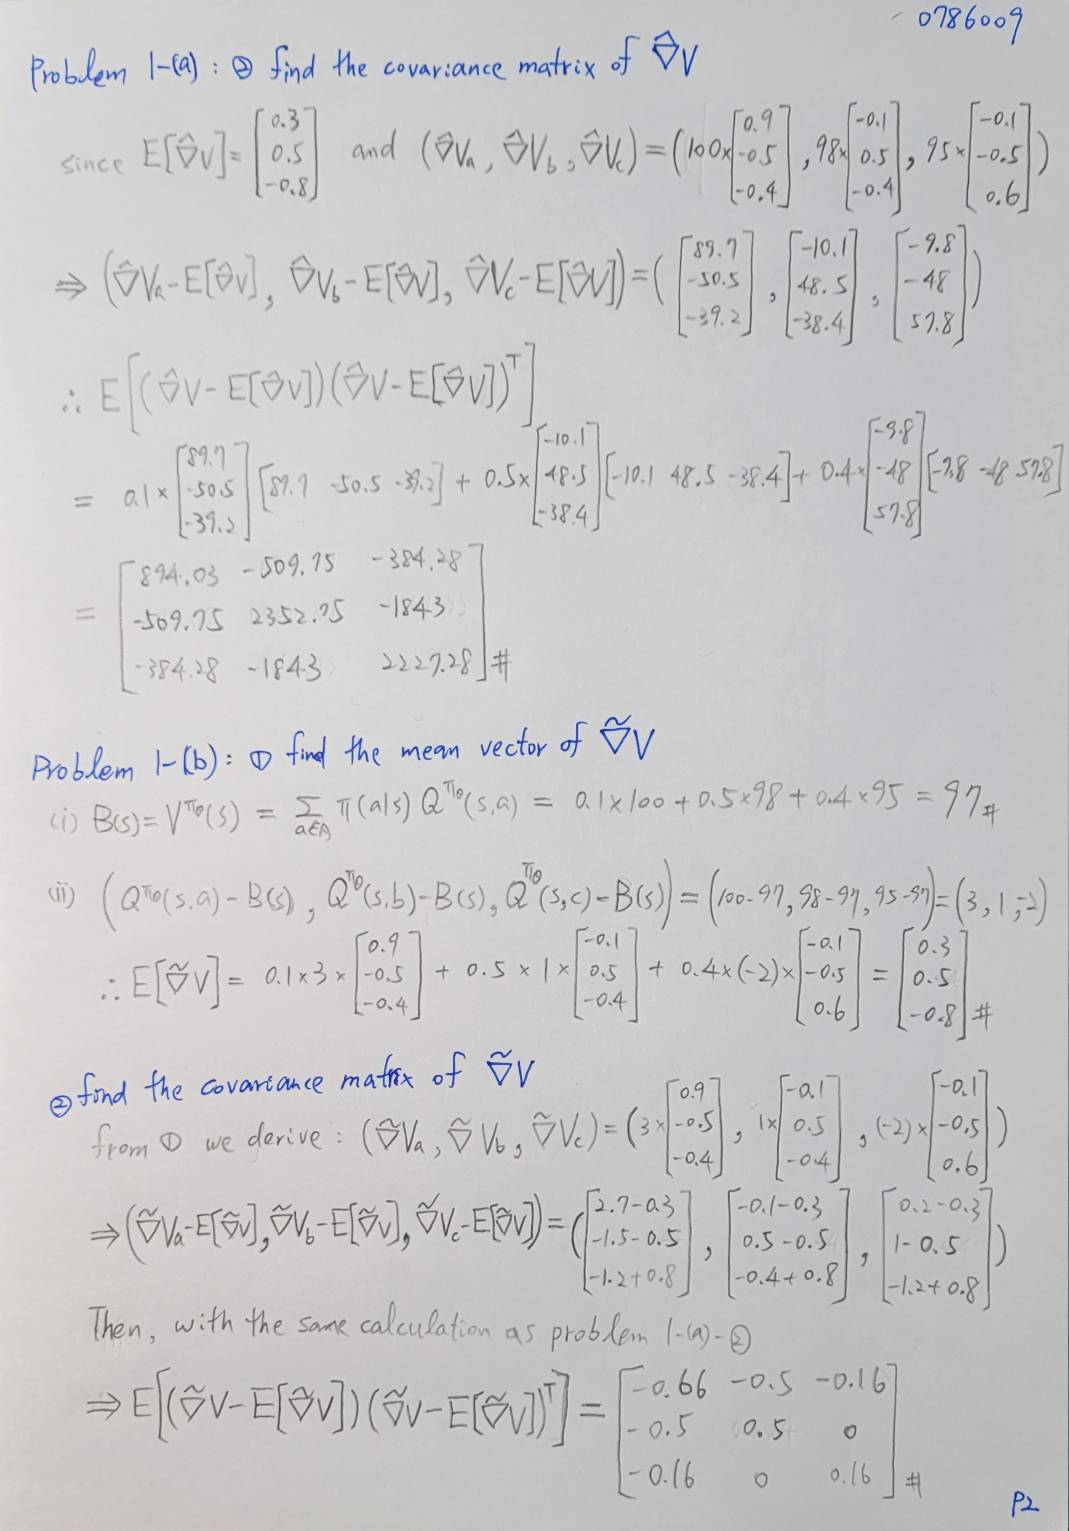 0786009
Problem 1-(a) : ② find the covariance matrix of ∇̂V
since E[∇̂V] = [0.3; 0.5; -0.8] and (∇̂Va, ∇̂Vb, ∇̂Vc) = (100×[0.9; -0.5; -0.4], 98×[-0.1; 0.5; -0.4], 95×[-0.1; -0.5; 0.6])
⇒ (∇̂Va-E[∇̂V], ∇̂Vb-E[∇̂V], ∇̂Vc-E[∇̂V]) = ([89.7; -50.5; -39.2], [-10.1; 48.5; -38.4], [-9.8; -48; 57.8])
∴ E[(∇̂V-E[∇̂V])(∇̂V-E[∇̂V])ᵀ]
= 0.1×[89.7; -50.5; -39.2][89.7 -50.5 -39.2] + 0.5×[-10.1; 48.5; -38.4][-10.1 48.5 -38.4] + 0.4×[-9.8; -48; 57.8][-9.8 -48 57.8]
= [894.03 -509.75 -384.28; -509.75 2352.75 -1843; -384.28 -1843 2227.28] #
Problem 1-(b) : ① find the mean vector of ∇̃V
(i) B(s) = V^πθ(s) = Σ_{a∈A} π(a|s) Q^πθ(s,a) = 0.1×100 + 0.5×98 + 0.4×95 = 97 #
(ii) (Q^πθ(s,a)-B(s), Q^πθ(s,b)-B(s), Q^πθ(s,c)-B(s)) = (100-97, 98-97, 95-97) = (3, 1, -2)
∴ E[∇̃V] = 0.1×3×[0.9; -0.5; -0.4] + 0.5×1×[-0.1; 0.5; -0.4] + 0.4×(-2)×[-0.1; -0.5; 0.6] = [0.3; 0.5; -0.8] #
② find the covariance matrix of ∇̃V
from ① we derive : (∇̃Va, ∇̃Vb, ∇̃Vc) = (3×[0.9; -0.5; -0.4], 1×[-0.1; 0.5; -0.4], (-2)×[-0.1; -0.5; 0.6])
⇒ (∇̃Va-E[∇̃V], ∇̃Vb-E[∇̃V], ∇̃Vc-E[∇̃V]) = ([2.7-0.3; -1.5-0.5; -1.2+0.8], [-0.1-0.3; 0.5-0.5; -0.4+0.8], [0.2-0.3; 1-0.5; -1.2+0.8])
Then, with the same calculation as problem 1-(a)-②
⇒ E[(∇̃V-E[∇̃V])(∇̃V-E[∇̃V])ᵀ] = [-0.66 -0.5 -0.16; -0.5 0.5 0; -0.16 0 0.16] #
P2